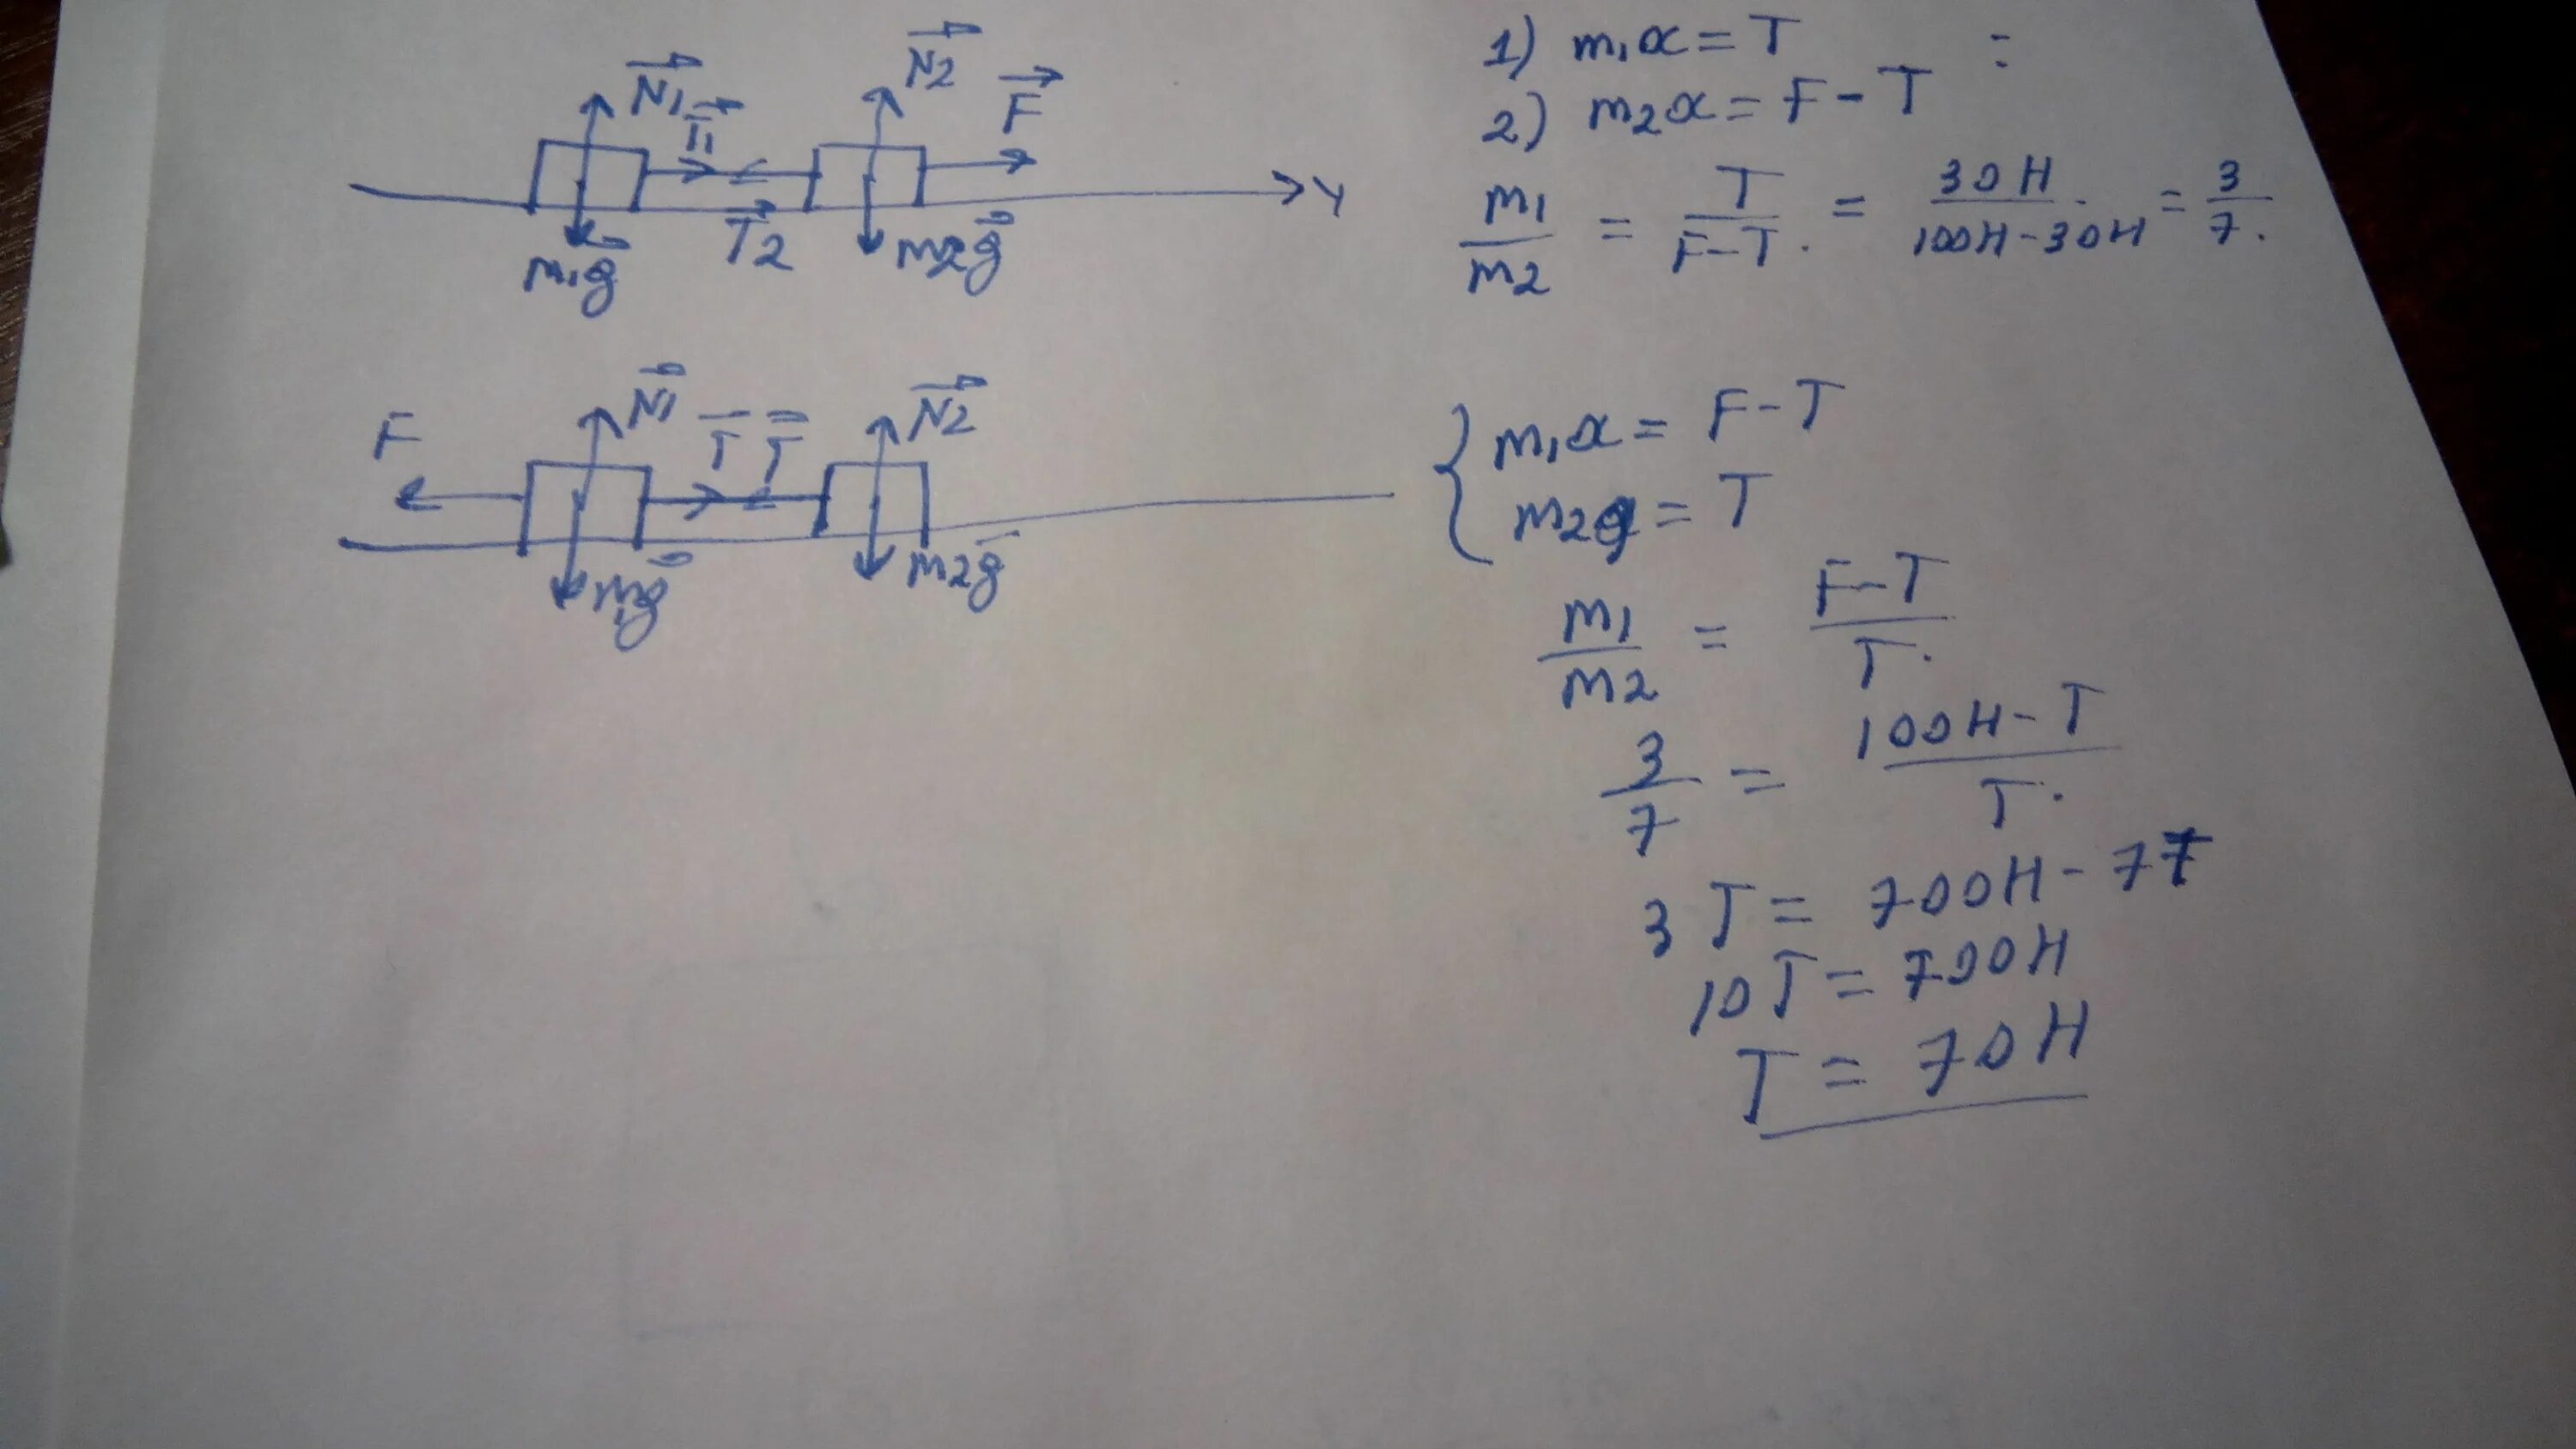 N1 T1 N2 F
m1g T2 m2g Y
1) m1a = T :
2) m2a = F - T
m1/m2 = T/F-T. = 30H/100H-30H = 3/7.
F N1 T T N2
m1g m2g
m1a = F - T
m2a = T
m1/m2 = F-T/T.
3/7 = 100H-T/T.
3T = 700H - 7T
10T = 700H
T = 70H